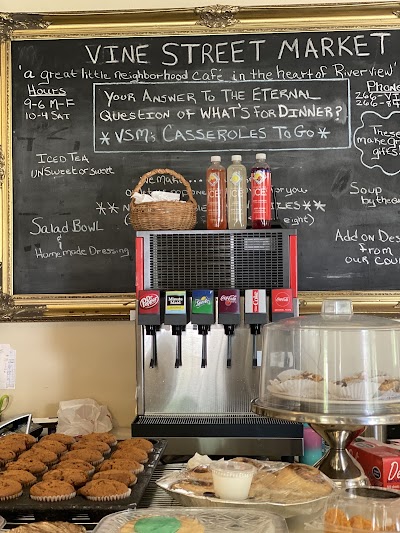 VINE STREET MARKET
"a great little neighborhood café in the heart of Riverview"
Hours
9-6 M-F
10-4 SAT
YOUR ANSWER TO THE ETERNAL
QUESTION OF WHAT'S FOR DINNER?
* VSM'S CASSEROLES TO GO *
Phone
266-
266-8
These
make gre
gifts.
ICED TEA
UNSWEET or SWEET
you
IZES **
Soup
by the qu
SALAD BOWL
&
HOMEMADE DRESSING
ADD ON DES
FROM
our cou
Dr Pepper
Minute Maid
Coca-Cola
Coca-Cola